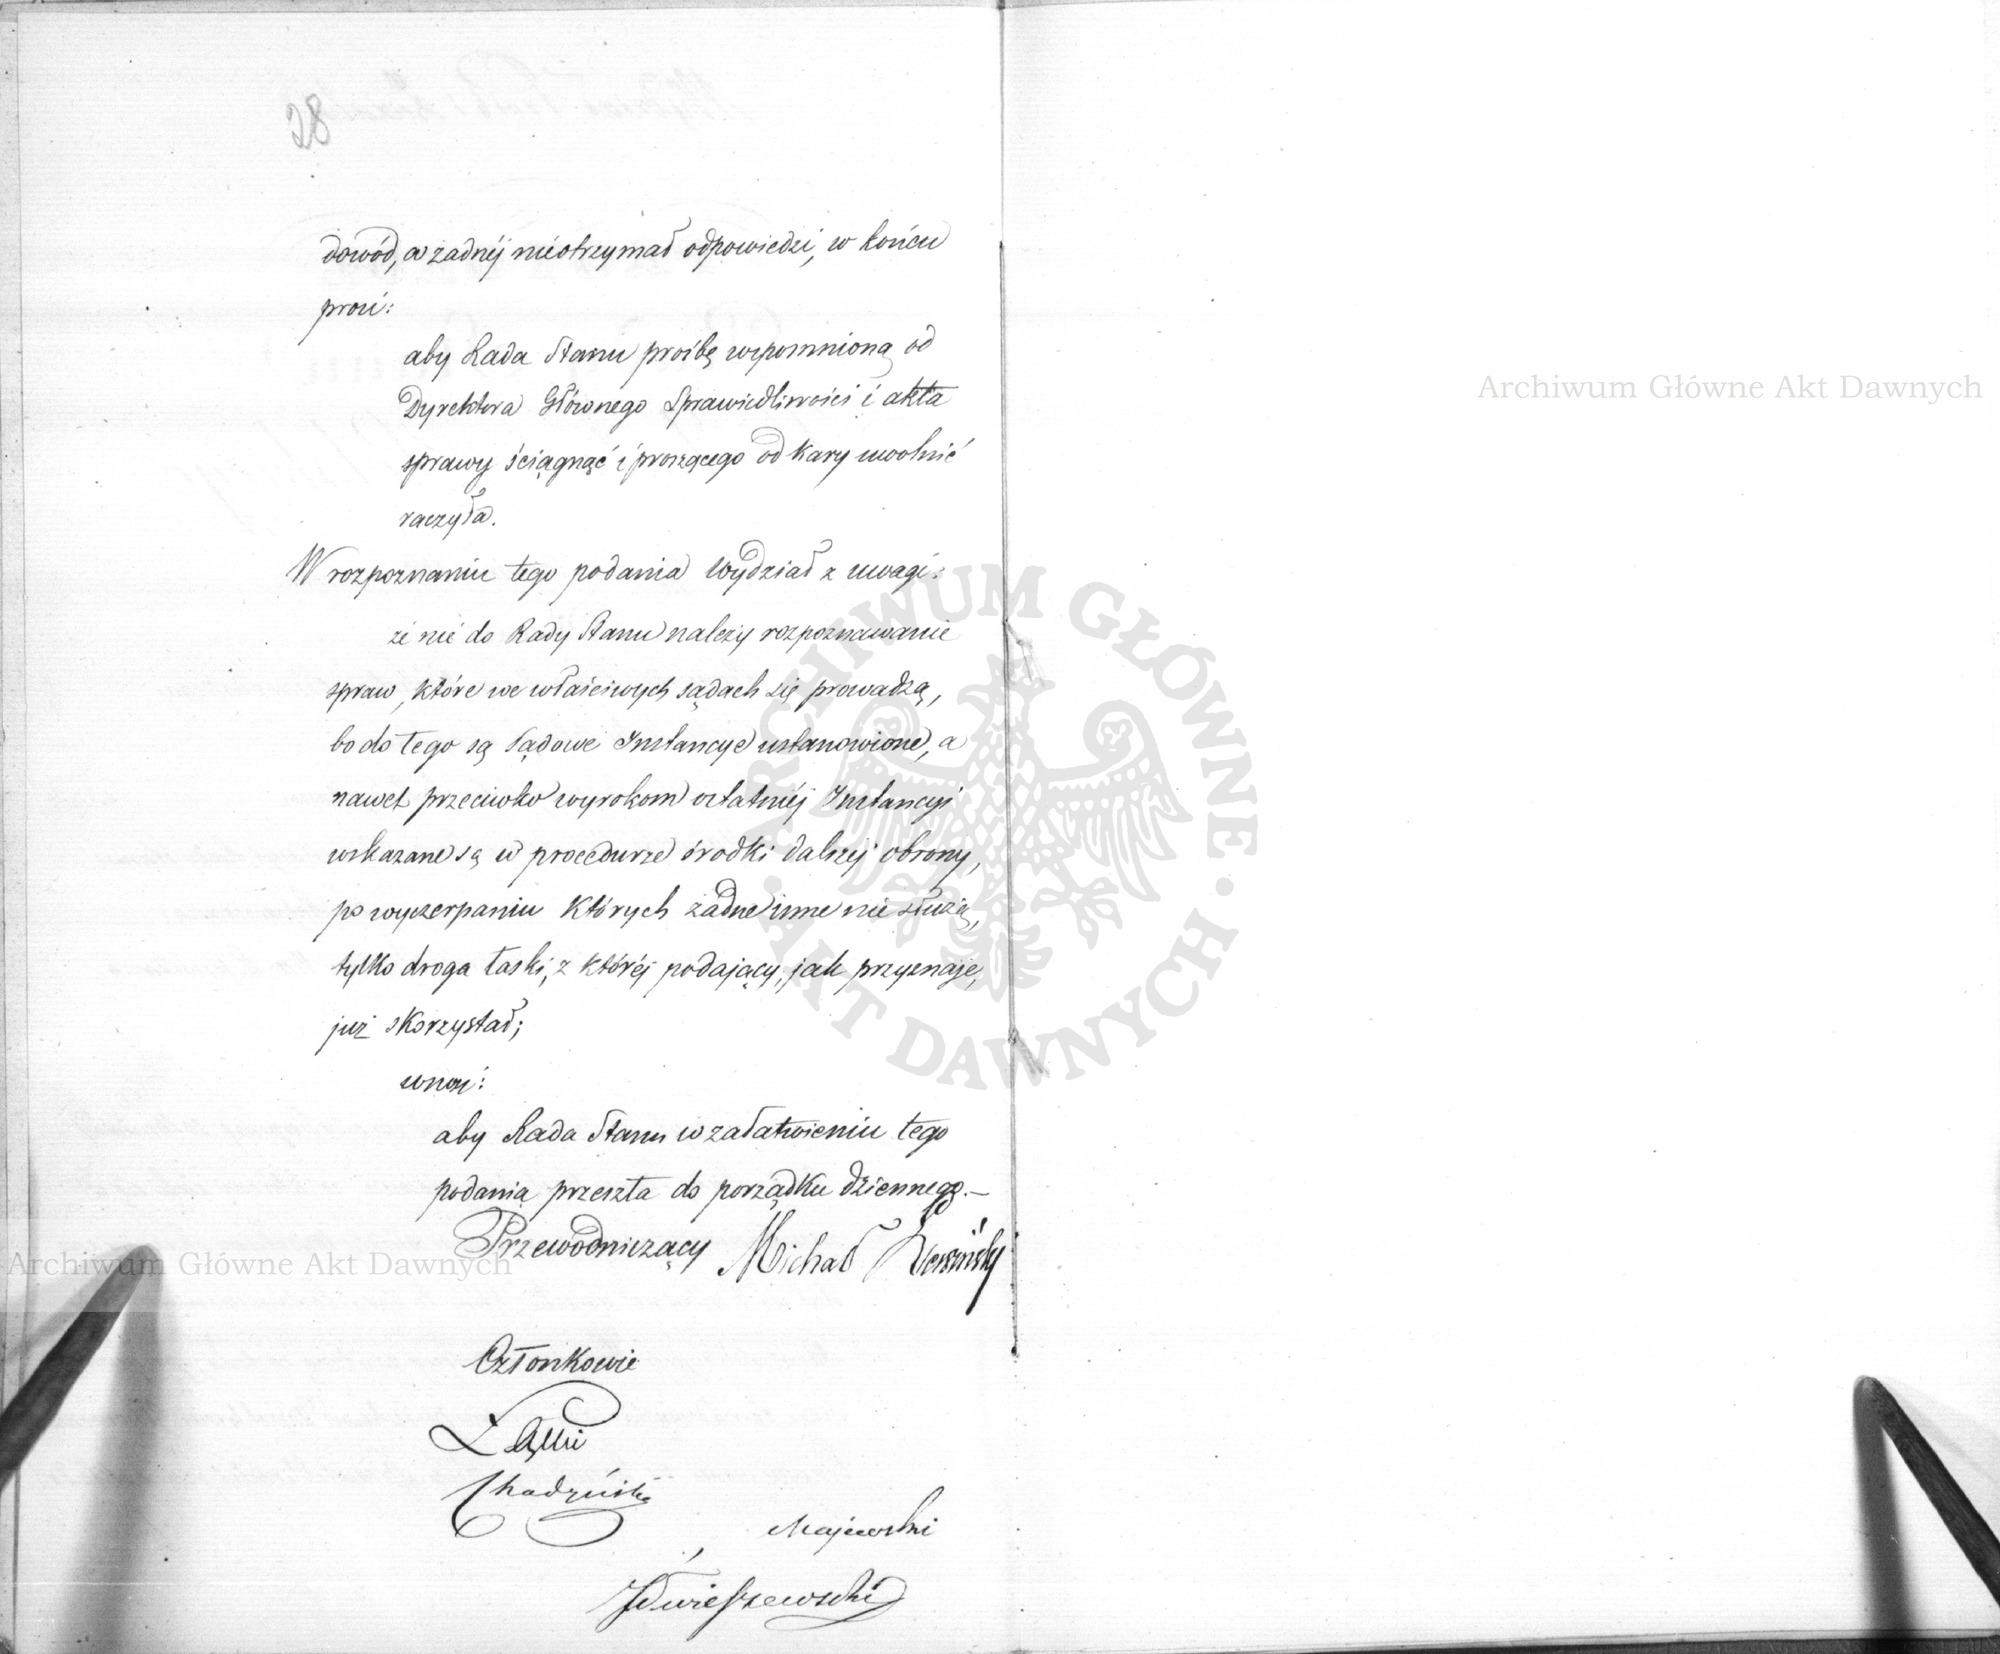 28
dowód, a żadnéj nieotrzymał odpowiedzi, w końcu
prosi:
aby Rada Stanu prośbę wspomnioną od
Dyrektora Głównego Sprawiedliwości i akta
sprawy ściągnąć i proszącego od kary uwolnić
raczyła.
W rozpoznaniu tego podania Wydział z uwagi:
że nie do Rady Stanu należy rozpoznawanie
spraw, które we właściwych sądach się prowadzą,
bo do tego są Sądowe Instancye ustanowione, a
nawet przeciwko wyrokom ostatniéj Instancyi
wskazane są w procedurze środki dalszéj obrony,
po wyczerpaniu których żadne inne nie służą,
tylko droga łaski, z któréj podający, jak przyznaje,
już skorzystał;
wnosi:
aby Rada Stanu w załatwieniu tego
podania przeszła do porządku dziennego.—
Przewodniczący Michał
Członkowie
Majewski
Archiwum Główne Akt Dawnych
Archiwum Główne Akt Dawnych
ARCHIWUM GŁÓWNE · AKT DAWNYCH ·